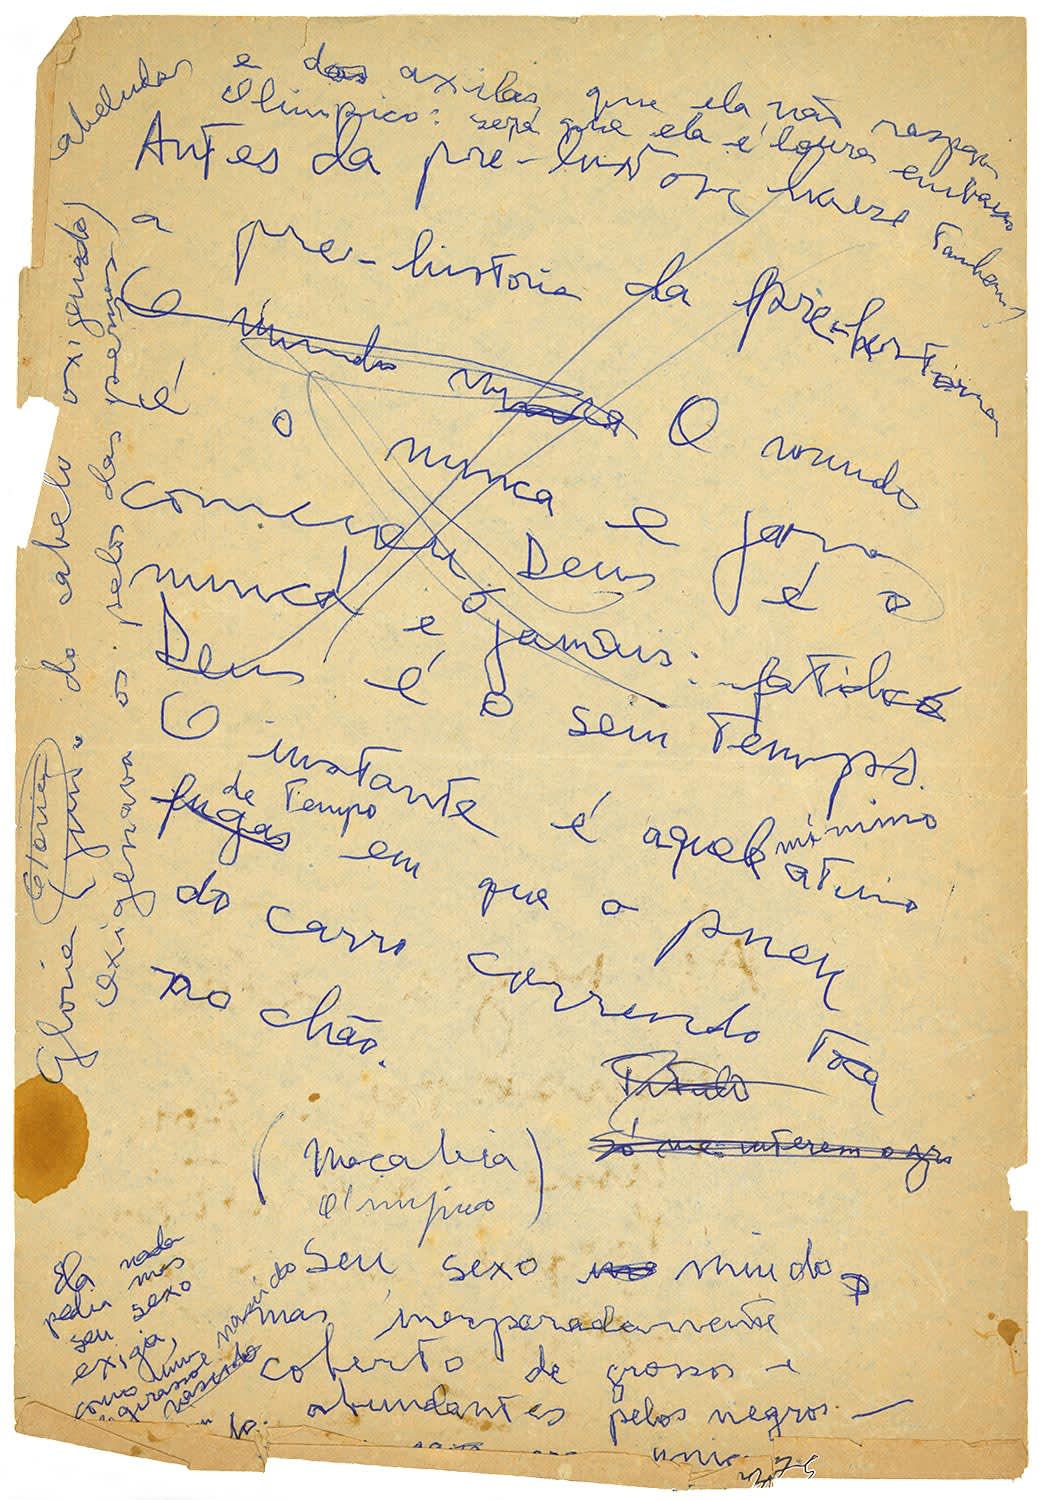 e das axilas que ela não raspava
Olimpico: será que ela é loura embaixo também?
Antes da pré-história houve
a pré-história da pré-história
O mundo nunca O mundo
é o nunca e já é o
começou. Deus
nunca e o jamais:
Deus é o sem tempo.
O instante é aquele mínimo
de tempo átimo
fugaz em que o pneu
do carro correndo toca
no chão.
Título
só me interem
(Macabéa
Olimpico)
Seu sexo miúdo,
mas inesperadamente
coberto de grossos e
abundantes pelos negros —
Ela nada
pedia mas
seu sexo
exigia,
como um
girassol nascido
Glória do cabelo oxigenado)
oxigenava os pelos das pernas cabeludas